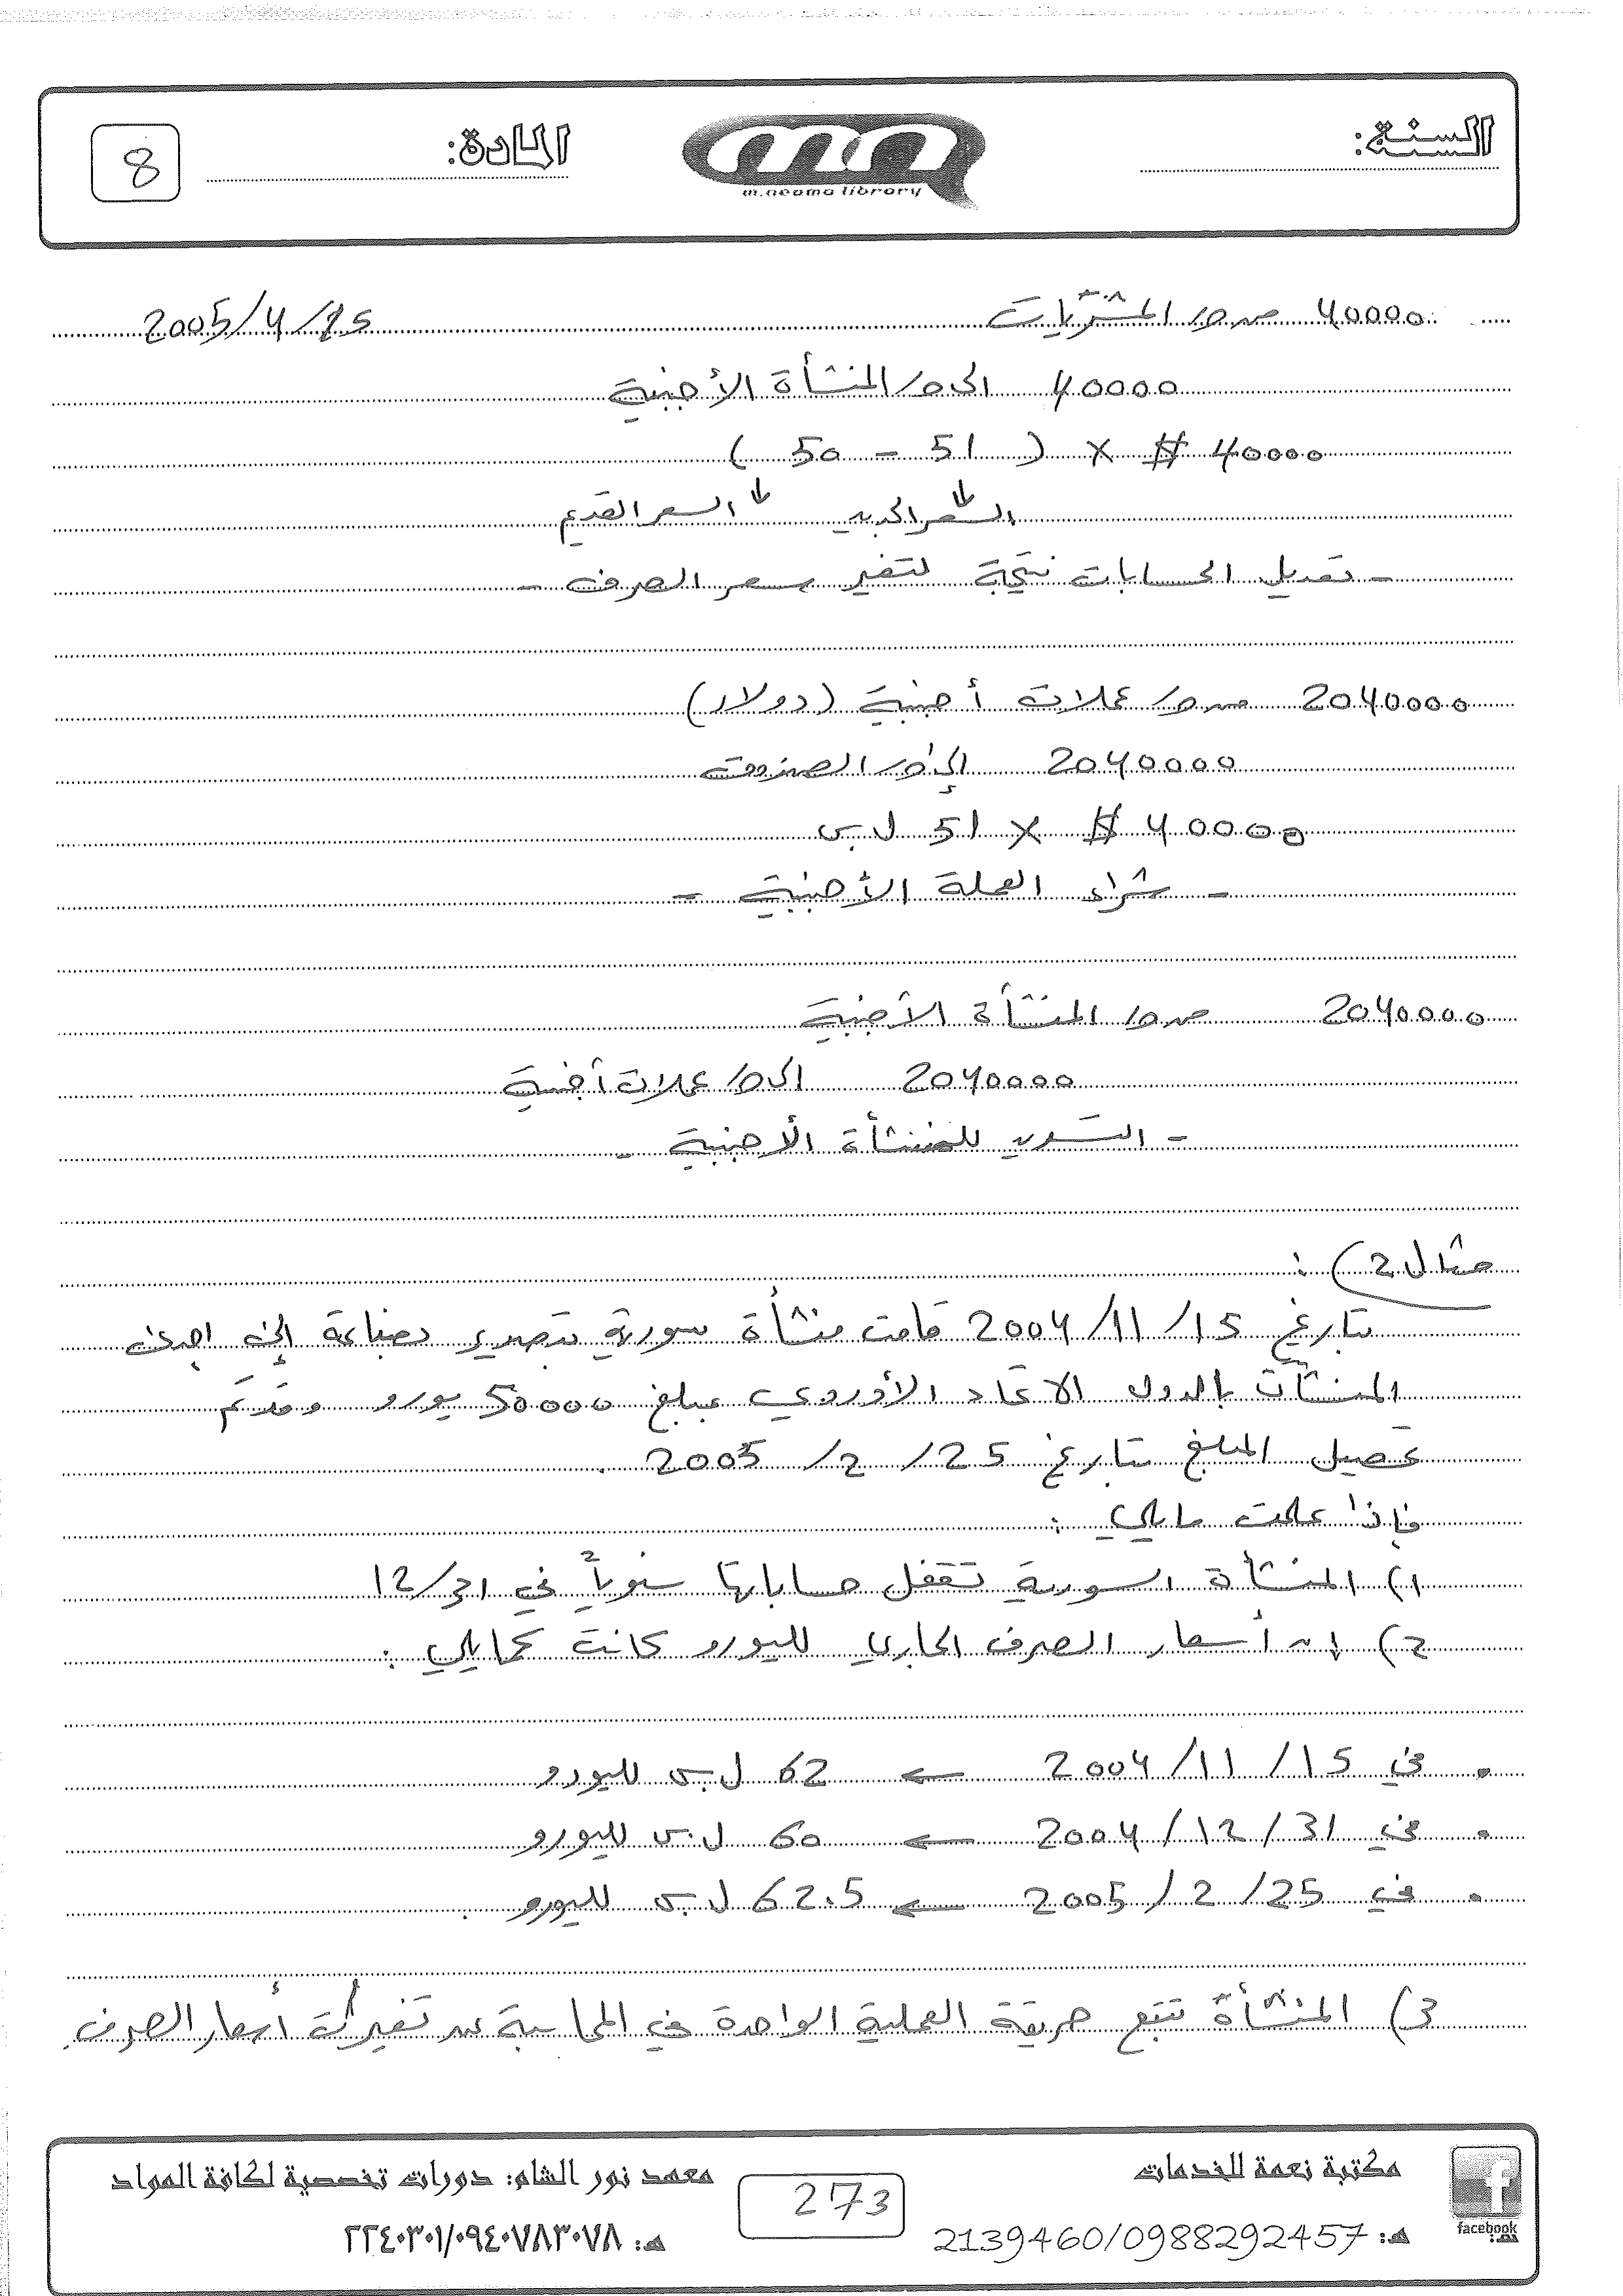 السنة:
m.neama library
المادة:
8
40000 من ح/ المشتريات 2005/4/15
40000 الى ح/ المنشأة الأجنبية
40000 $ × ( 51 - 50 )
السعر الجديد السعر القديم
- تعديل الحسابات نتيجة لتغير سعر الصرف -
2040000 من ح/ عملات أجنبية (دولار)
2040000 إلى ح/ الصندوق
40000 $ × 51 ل.س
- شراء العملة الأجنبية -
2040000 من ح/ المنشأة الأجنبية
2040000 الى ح/ عملات أجنبية
- التسديد للمنشأة الأجنبية -
مثال 2) :
بتاريخ 15/11/2004 قامت منشأة سورية بتصدير بضاعة إلى احدى
المنشآت بالدول الاتحاد الأوروبي بمبلغ 50000 يورو وقد تم
تحصيل المبلغ بتاريخ 25/2/2005 .
فإذا علمت مايلي :
1) المنشأة السورية تقفل حساباتها سنوياً في 31/12
2) إن أسعار الصرف الجاري لليورو كانت كمايلي :
• في 15/11/2004 ← 62 ل.س لليورو
• في 31/12/2004 ← 60 ل.س لليورو
• في 25/2/2005 ← 62.5 ل.س لليورو .
3) المنشأة تتبع طريقة العملية الواحدة في المحاسبة عن تغيرات أسعار الصرف.
مكتبة نعمة للخدمات
معهد نور الشام: دورات تخصصية لكافة المواد
273
هـ: 2139460/0988292457
هـ: ٢٢٤٠٣٠١/٠٩٤٠٧٨٣٠٧٨
facebook